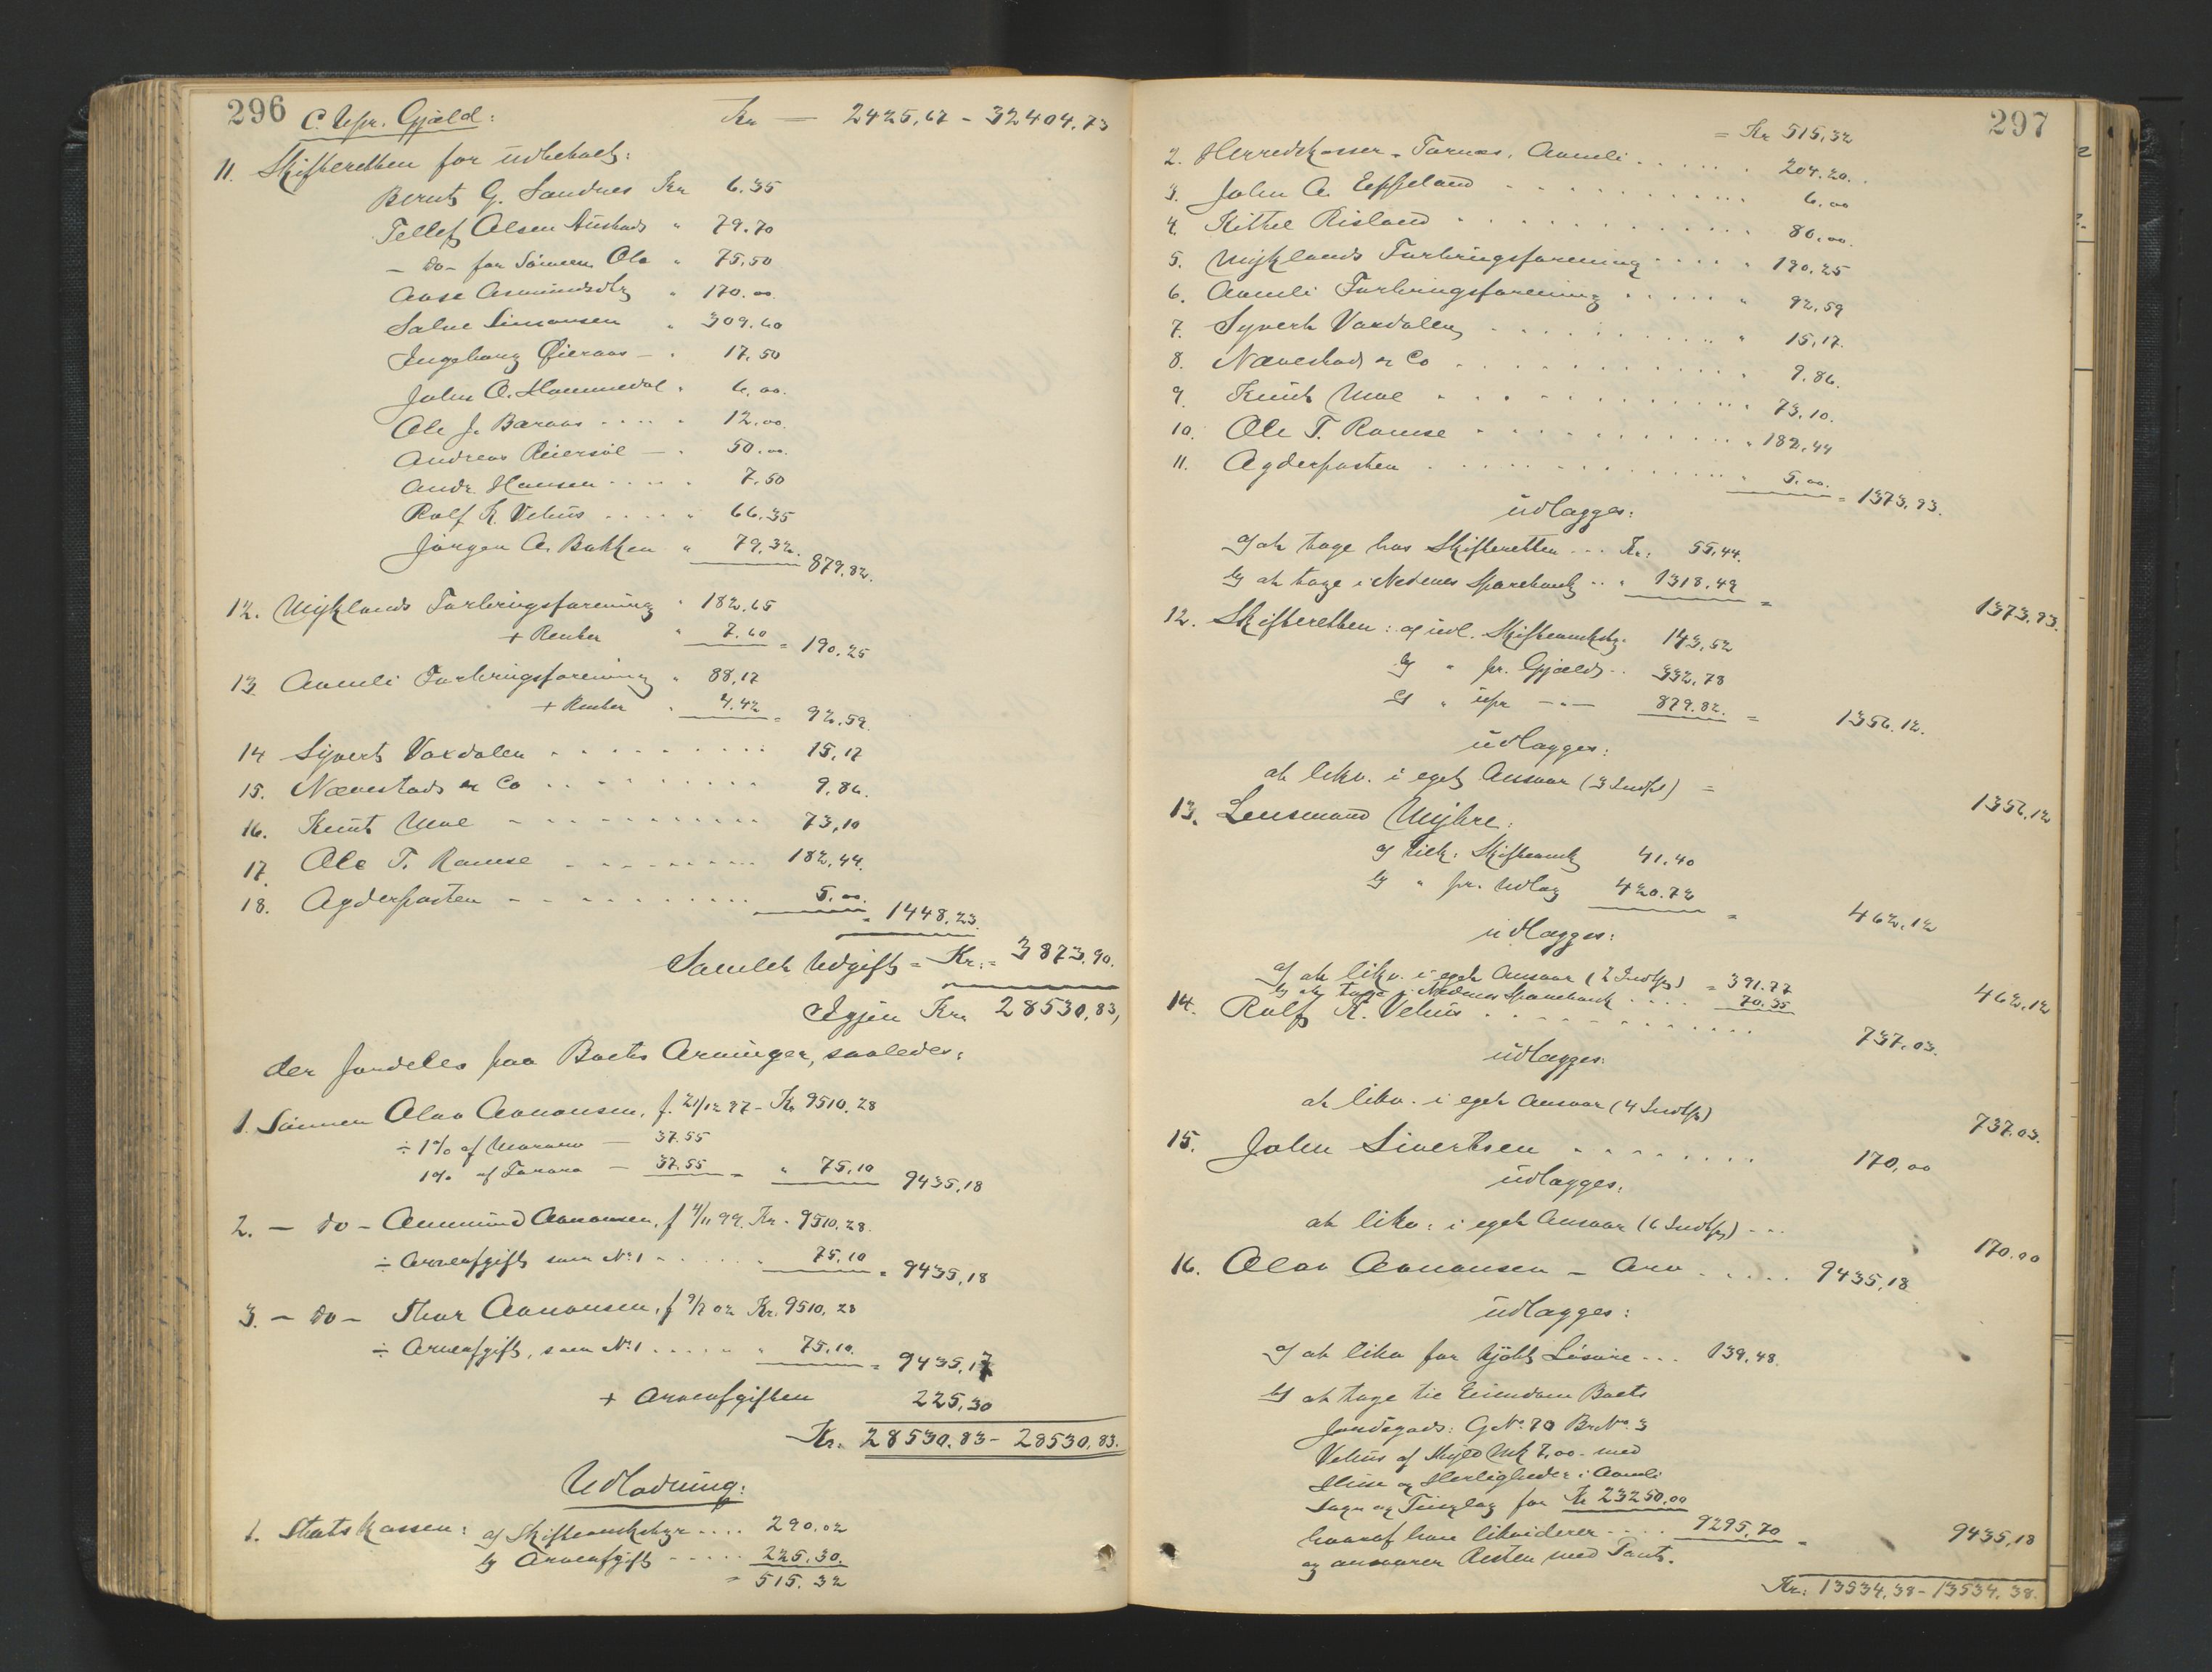 296
C. Upr. Gjæld:
Kr — 2425,67 - 32404,73
11. Skifteretten for udbetalt:
Bernt G. Sandnes Kr 6.35
Tellef Olsen Austad " 79.70
- do - for Sönnen Ola " 75,50
Aase Asmundsdtr " 170.00
Salve Simonsen " 309.60
Ingeborg Øieraas - " 17,50
John O. Hammedal " 6,00.
Ole J. Baraas . . . . " 12.00.
Andreas Reiersöl — " 50.00.
Andr. Hansen . . . . " 7,50
Rolf K. Vehus . . . . " 66,35
Jörgen A. Bakken " 79,32. 879,82.
12. Myklands Forbrugsforening " 182,65
+ Renter " 7.60 = 190,25
13 Aamli Forbrugsforening " 88,17
+ Renter " 4.42 = 92,59.
14 Syvert Vaxdalen . . . . . . . . 15,17
15. Nævestad & Co . . . . . . . . 9,86.
16. Knut Moe - . . . . . . . . 73,10
17. Ole T. Ramse . . . . . . . . 182,44.
18. Agderposten - . . . . . . . . 5,00. = 1448,23.
Samlet Udgift = Kr. = 3873,90.
Igjen Kr. 28530,83,
der fordeles paa Boets Arvinger, saaledes:
1. Sönnen Olav Aanonsen, f. 21/12 97 - Kr 9510,28
÷ 1% af Morarv — 37.55
1% af Fararv — 37.55 = " 75,10 9435,18
2. — do - Aanund Aanonsen, f 4/11 99. Kr. 9510.28.
÷ Arveafgift som No 1 - . . . . " 75,10 = 9435,18
3. — do - Thor Aanonsen, f 9/2 02 Kr. 9510,28
÷ Arveafgift, som No 1 . . . . . " 75,10. = 9435,17
+ Arveafgiften 225,30
Kr. 28530,83 - 28530,83.
Udlodning:
1. Statskassen: a) Skifteomkstgr . . . . 290.02
b) Arveafgift - . . . . 225,30.
= 515,32
297
= Kr 515,32
2. Herredskasser. Tornes, Aamli . . . . . . 204.20.
3. John A. Eppeland . . . . . . . . . 6.00
4. Kittel Risland . . . . . . . . . . 80,00.
5. Myklands Forbrugsforening . . . . " 190,25
6. Aamli Forbrugsforening . . . . . " 92,59
7. Syvert Vaxdalen . . . . . . . . " 15,17.
8. Nævestad & Co . . . . . . . . . " 9,86.
9. Knut Moe . . . . . . . . . . . " 73,10.
10. Ole T. Ramse . . . . . . . . . . " 182,44
11. Agderposten . . . . . . . . . . " 5,00. = 1373,93.
udlægges:
a) at tage hos Skifteretten . . . Kr: 55,44.
b) at tage i Nedenes Sparebank . . " 1318,49 = 1373,93.
12. Skifteretten: a) udl. Skifteomkstg. 143,52
b) " pr. Gjæld . . 332,78
c) " upr — " — 879.82. = 1356.12.
udlægges:
at likv. i eget Ansvar (3 Indtpt) = 1356,12
13. Lensmand Myhre:
a) tilk. Skifteomk 41.40
b) " pr. Udlæg 420.72 = 462,12
udlægges:
a) at likv. i eget Ansvar (2 Indtp) = 391.77
b) at tage i Nedenes Sparebank . . . . 70.35 462,12
14. Rolf K. Vehus . . . . . . . . . . . 737.03.
udlægges:
at likv. i eget Ansvar (4 Indtp) 737.03.
15. John Sivertsen . . . . . . . . 170,00
udlægges,
at likv: i eget Ansvar (6 Indtp) - . . 170.00
16. Olav Aanonsen - Arv . . . . . 9435,18
udlægges:
a) at likv for kjöbt Lösöre . . . 139,48.
b) at tage til Eiendom Boets
Jordegods: GNo. 70 BrNo. 3
Vehus af Skyld Mk 7,00 - med
Huse og Herligheder i Aamli
Sogn og Tinglag for Kr 23250,00
hvoraf han likviderer . . . . 9295,70 = 9435,18
og ansvarer Resten med Pant.
Kr: 13534,38 - 13534,38.